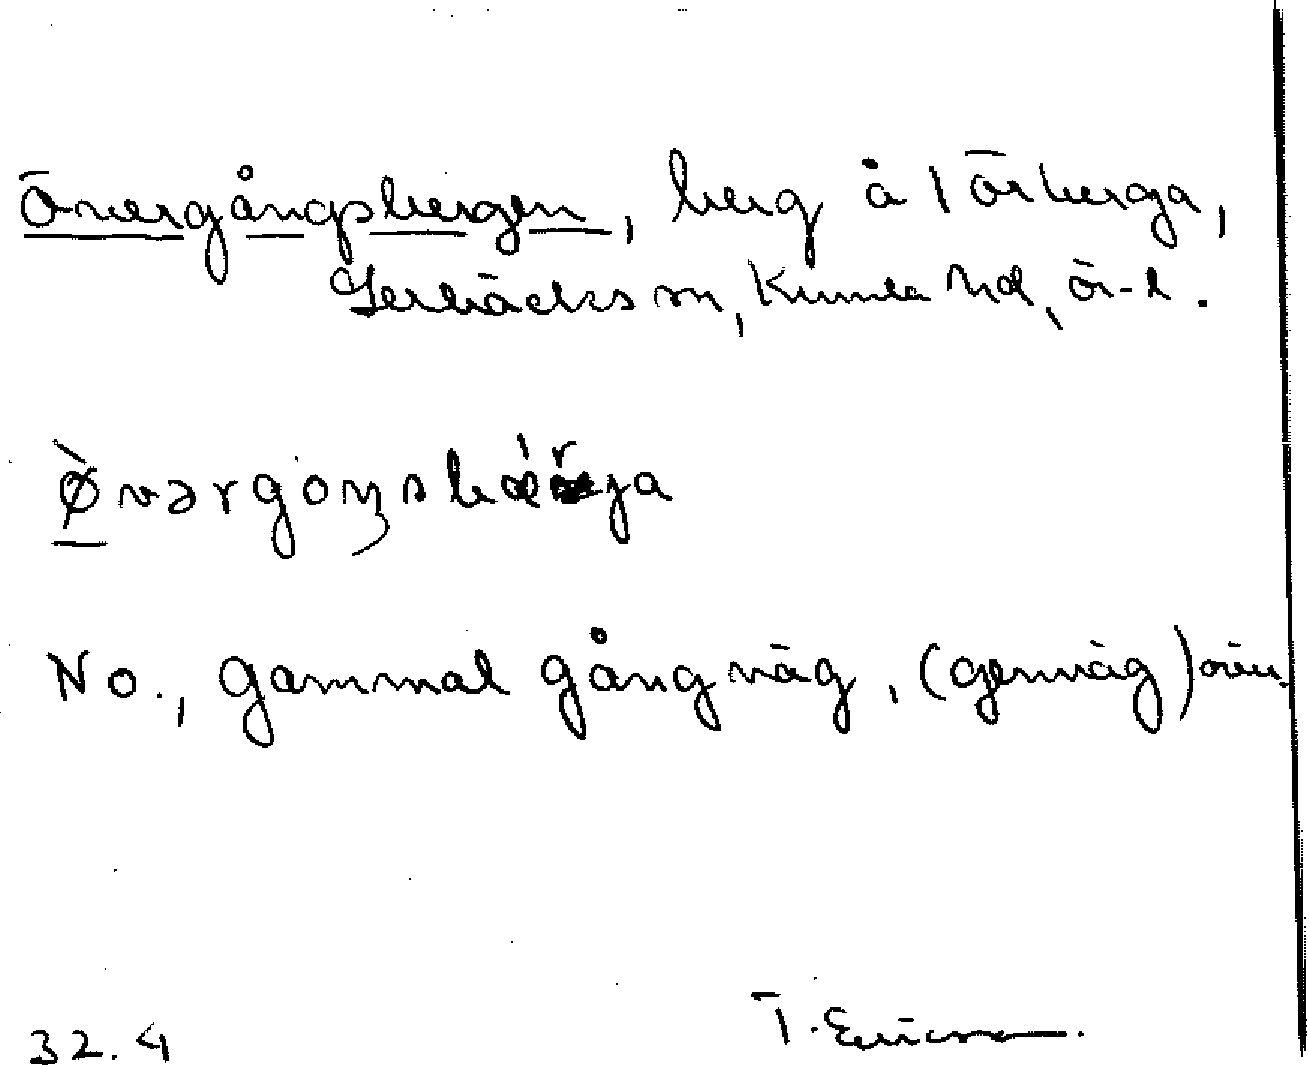 Övergångsbergen, berg å 1 Örberga,
Gerbäcks sn, Kumla hd, Ör-l.
Øvərgoŋsbærja
No., gammal gångväg, (genväg) över
32.4 T. Ericsson.